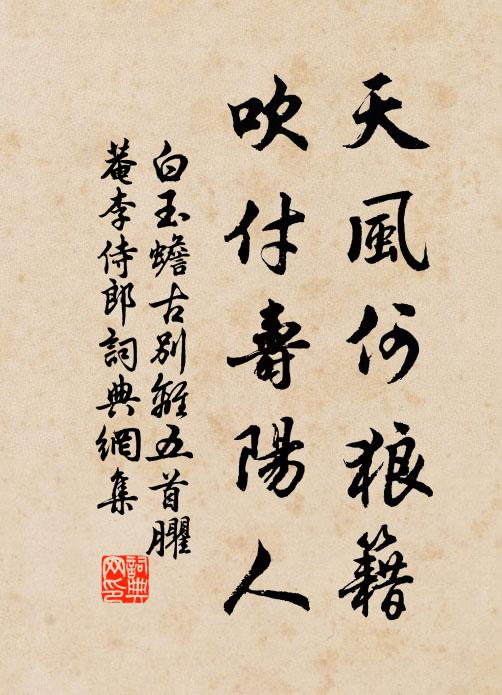 天風何狼籍
吹付壽陽人
白玉蟾古別離五首臞
菴李侍郎詞典網集
詞典网印